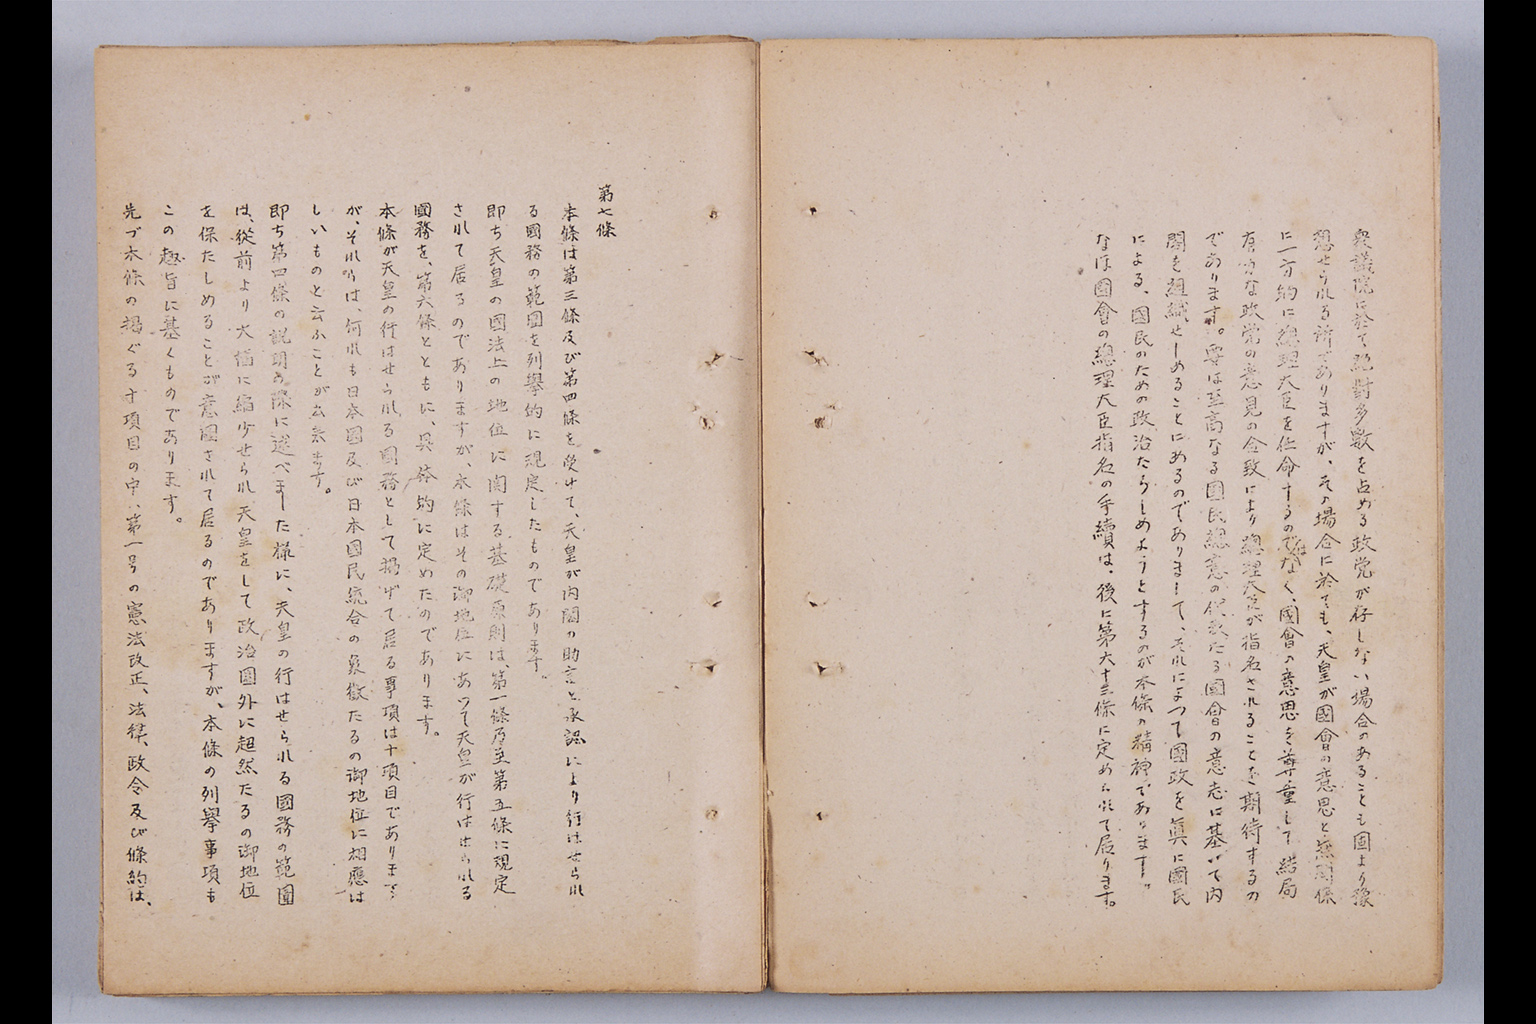 衆議院に於て絶對多數を占める政党が存しない場合のあることも固より豫
想せられる所でありますが、その場合に於ても、天皇が國會の意思と無関係
に一方的に總理大臣を任命するのではなく、國會の意思を尊重して結局
有力な政党の意見の合致により總理大臣が指名されることを期待するの
であります。要は至高なる國民總意の代表たる國會の意志に基いて内
閣を組織せしめることにあるのでありまして、それによつて國政を眞に國民
による、國民のための政治たらしめようとするのが本條の精神であります。
なほ國會の總理大臣指名の手續は、後に第六十三條に定められて居ります。
第七條
本條は第三條及び第四條を受けて、天皇が内閣の助言と承認により行はせられ
る國務の範圍を列擧的に規定したものであります。
即ち天皇の國法上の地位に関する基礎原則は、第一條乃至第五條に規定
されて居るのでありますが、本條はその御地位にあつて天皇が行はせられる
國務を、第六條とともに、具体的に定めたのであります。
本條が天皇の行はせられる國務として掲げて居る事項は十項目であります
が、それらは、何れも日本國及び日本國民統合の象徴たるの御地位に相應は
しいものと云ふことが出来ます。
即ち第四條の説明の際に述べました様に、天皇の行はせられる國務の範圍
は、從前より大幅に縮少せられ、天皇をして政治圏外に超然たるの御地位
を保たしめることが意圖されて居るのでありますが、本條の列擧事項も
この趣旨に基くものであります。
先づ本條の掲ぐる十項目の中、第一号の憲法改正、法律、政令及び條約は、